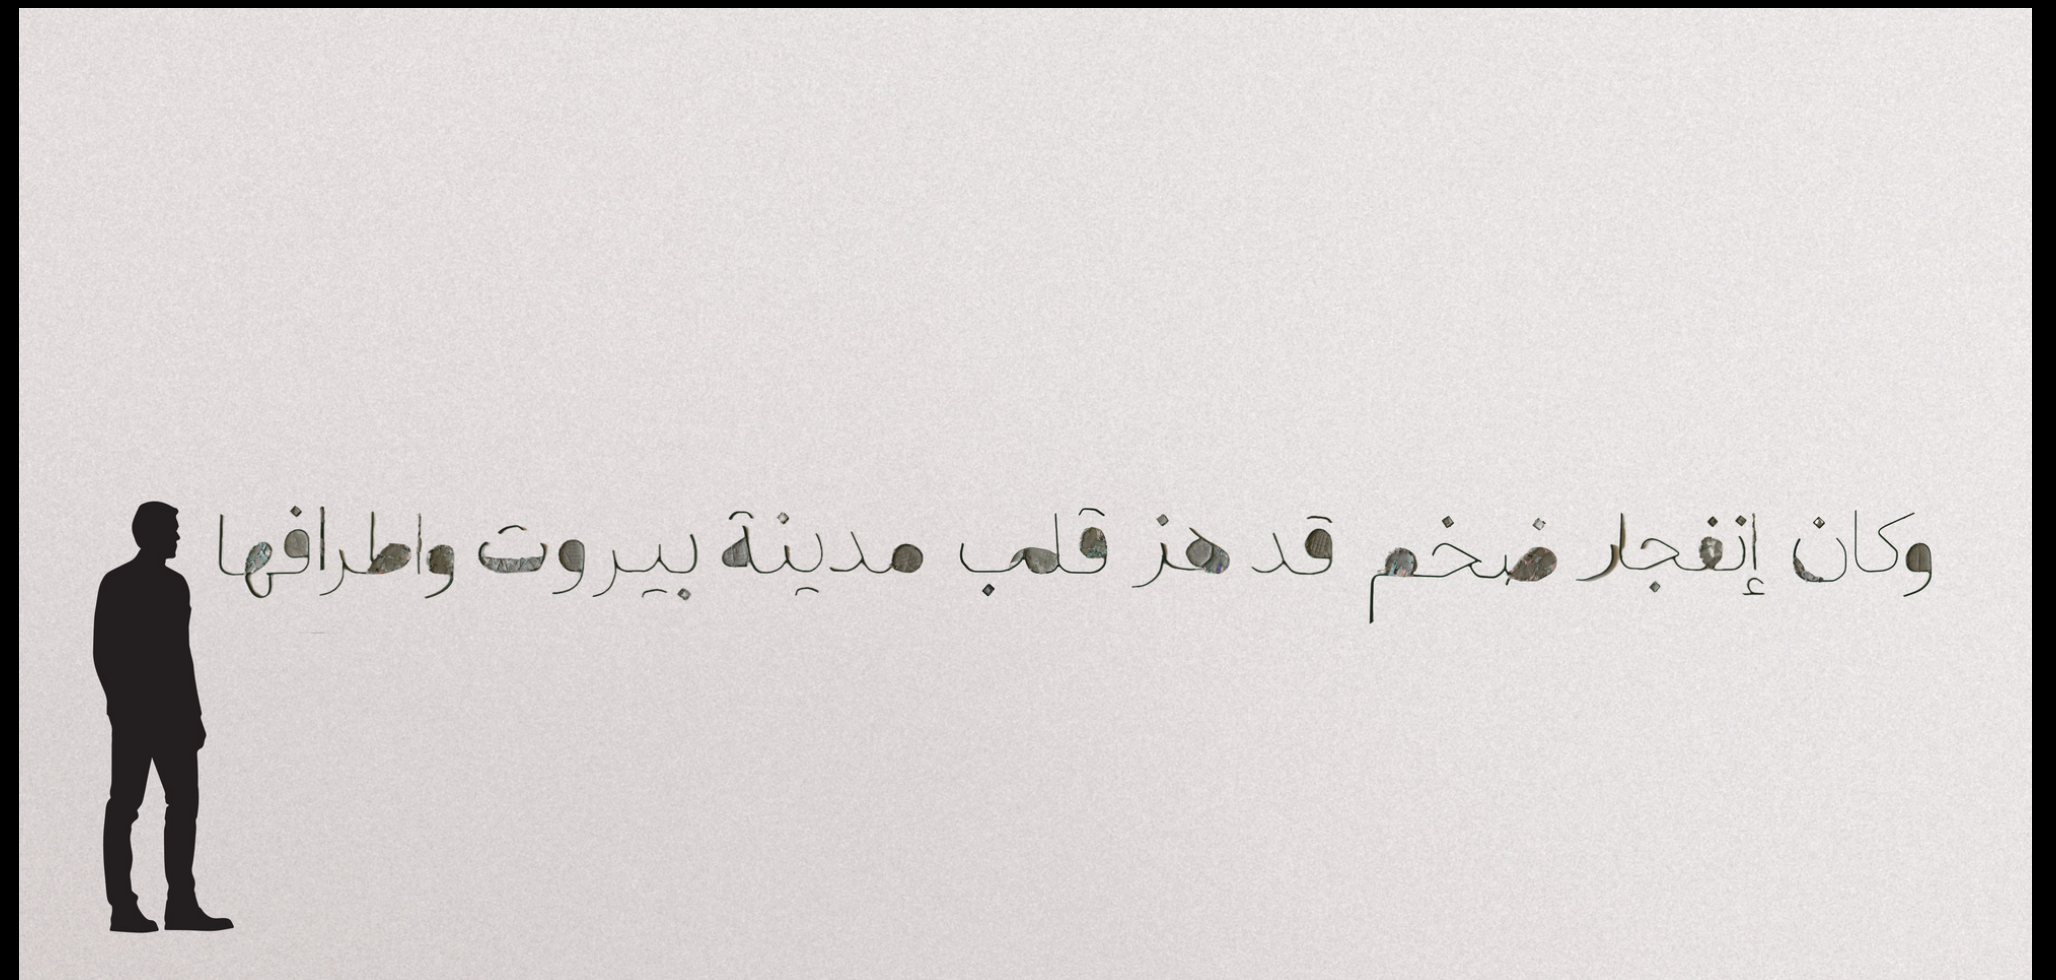 وكان إنفجار ضخم قد هز قلب مدينة بيروت واطرافها